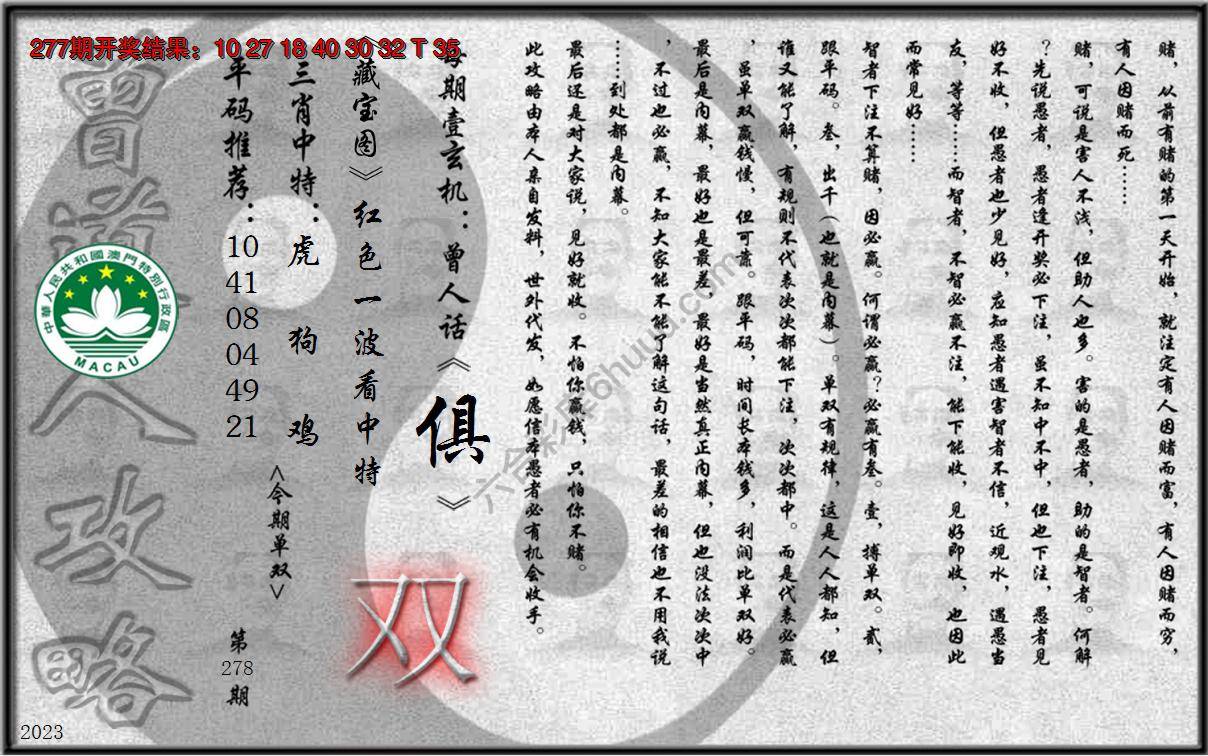 277期开奖结果：10 27 18 40 30 32 T 35
赌，从前有赌的第一天开始，就注定有人因赌而富，有人因赌而穷，
有人因赌而死……
赌，可说是害人不浅，但助人也多。害的是愚者，助的是智者。何解
？先说愚者，愚者逢开奖必下注，虽不知中不中，但也下注，愚者见
好不收，但愚者也少见好，应知愚者遇害智者不信，近观水，遇愚当
友，等等……而智者，不智必赢不注，能下能收，见好即收，也因此
而常见好……
智者下注不算赌，因必赢。何谓必赢？必赢有叁。壹，搏单双。贰，
跟平码。叁，出千（也就是内幕）。单双有规律，这是人人都知，但
谁又能了解，有规则不代表次次都能下注，次次都中。而是代表必赢
，虽单双赢钱慢，但可靠。跟平码，时间长本钱多，利润比单双好。
最后是内幕，最好也是最差，最好是当然真正内幕，但也没法次次中
，不过也必赢，不知大家能不能了解这句话，最差的相信也不用我说
……到处都是内幕。
最后还是对大家说，见好就收。不怕你赢钱，只怕你不赌。
此攻略由本人亲自发料，世外代发，如愿信本愚者必有机会收手。
每期壹玄机：曾人话《俱》
《藏宝图》红色一波看中特
三肖中特：虎 狗 鸡
平码推荐：10 41 08 04 49 21
<今期单双>
双
第278期
曾道人攻略
中華人民共和國澳門特別行政區
MACAU
六合彩库6huuu.com
2023